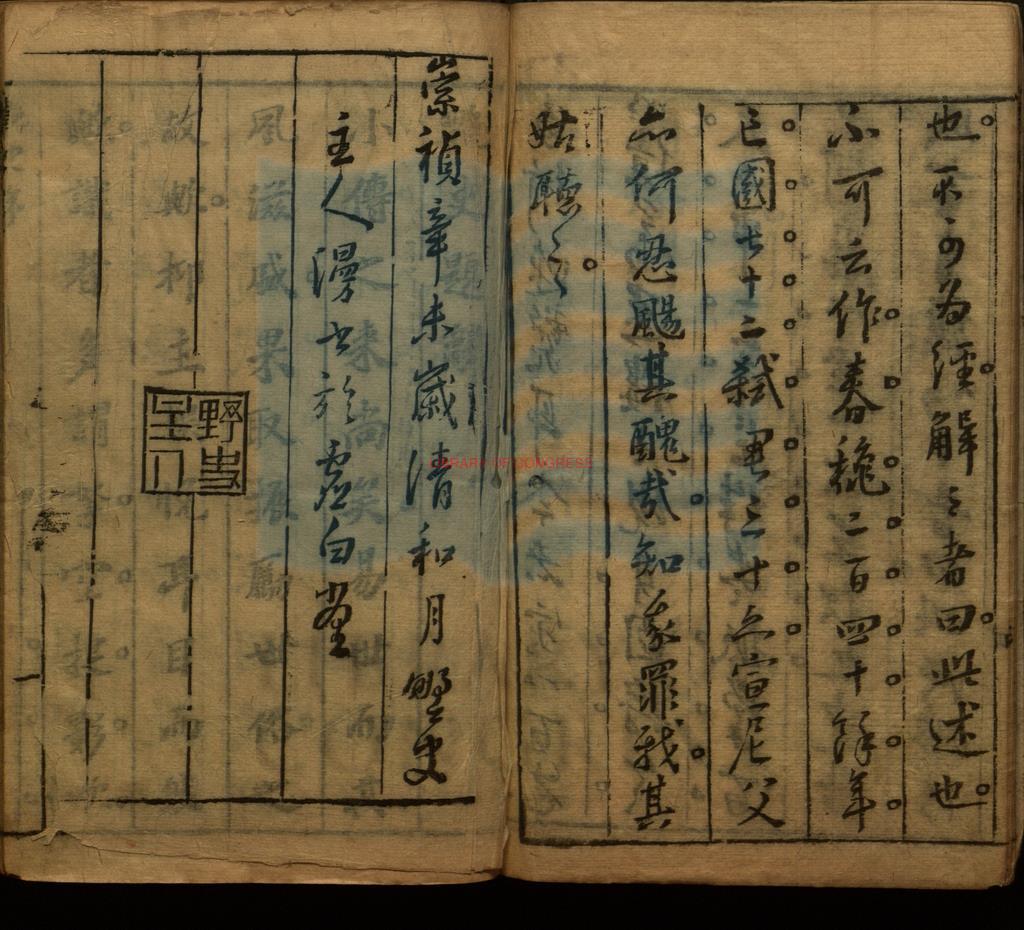 也。不可為經。解〻者曰。此述也。
不可云作。春穐二百四十餘年
亡國七十二弑君三十六宣尼父
亦何忍颺其醜哉。知我罪我。其
姑聽之。
崇禎辛未歲清和月野史
主人漫書於虛白堂
野史
主人
LIBRARY OF CONGRESS